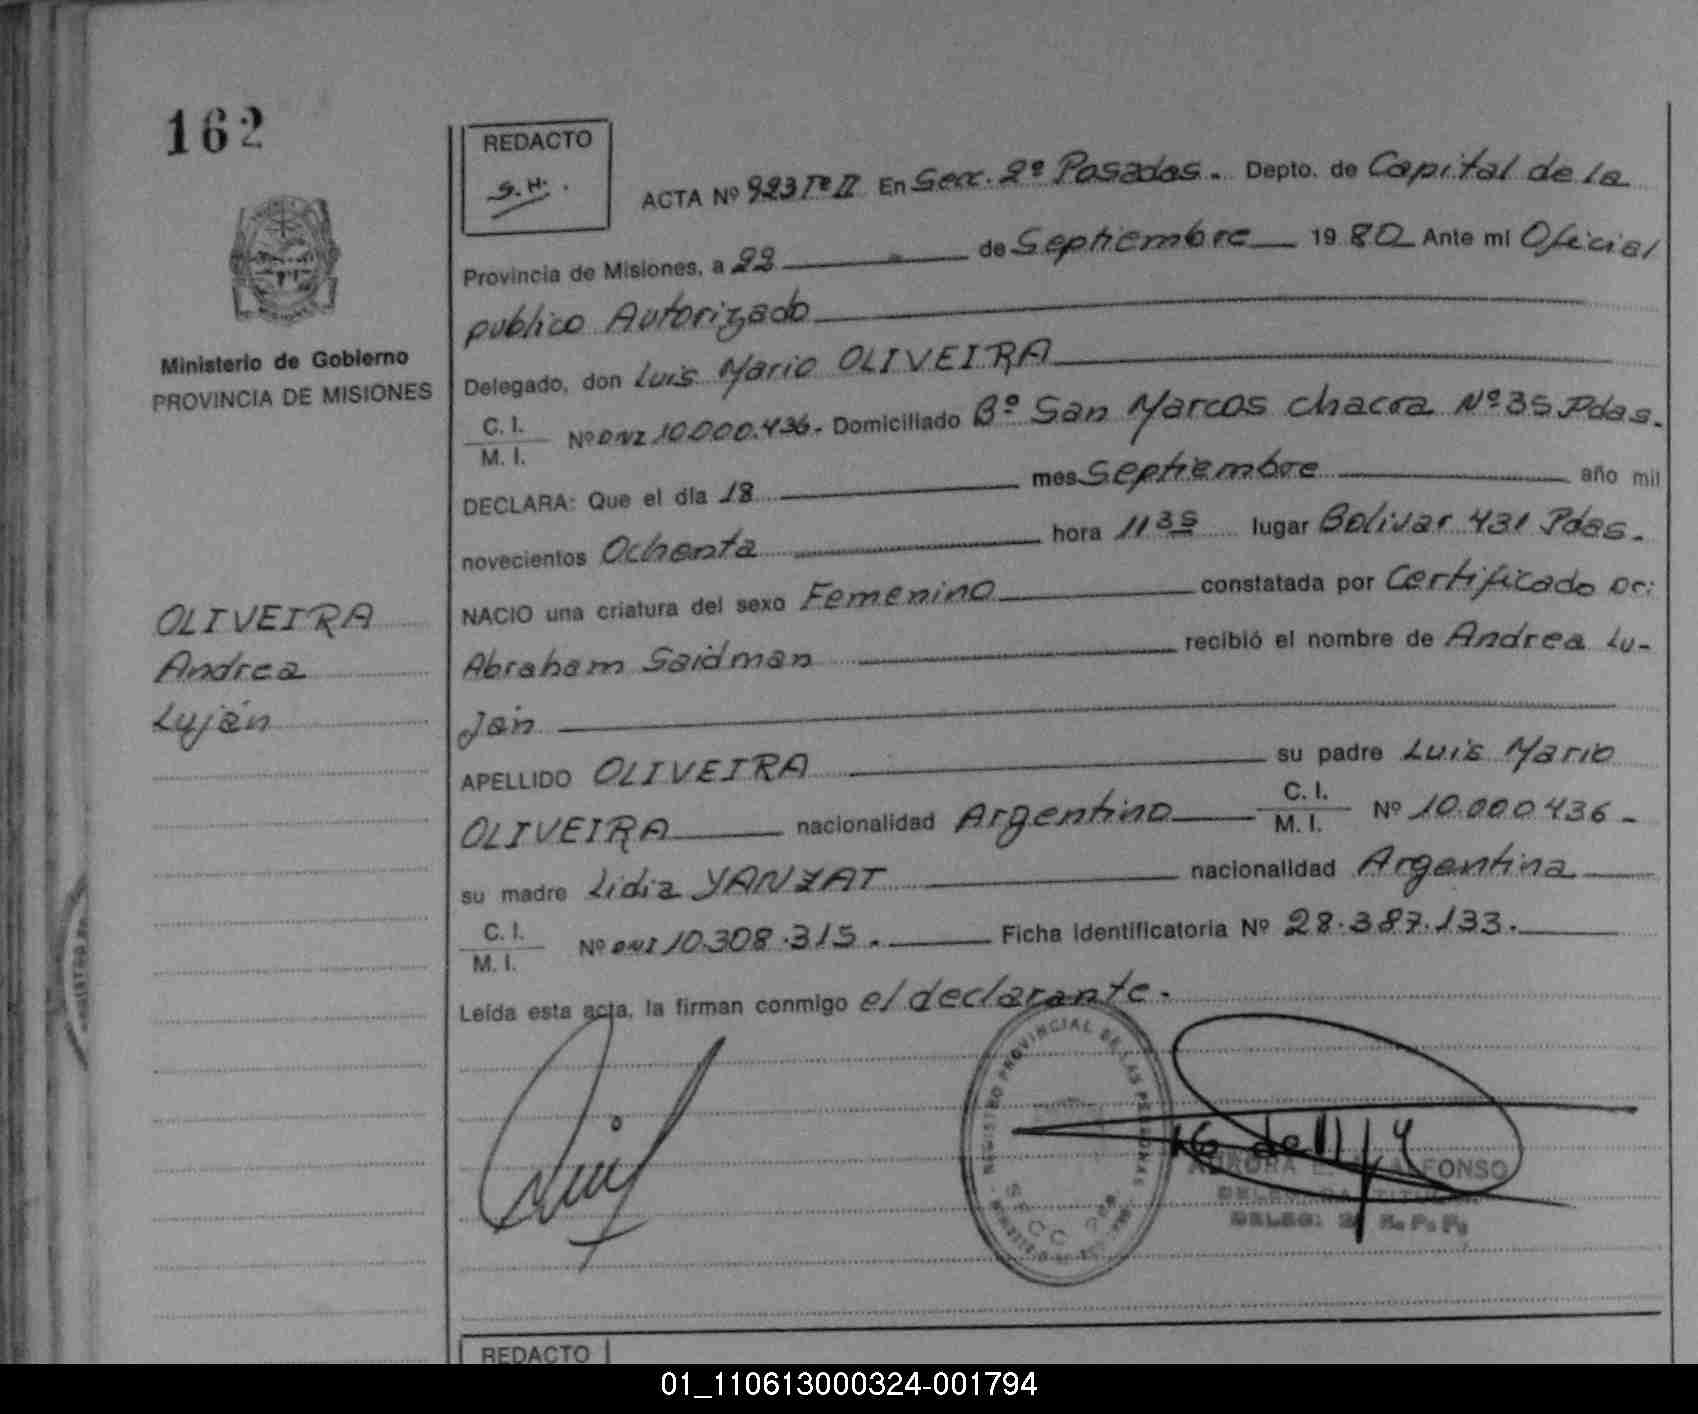 162
REDACTO
S.H.
ACTA Nº 923 Tº II En Secc. 2º Posadas. Depto. de Capital de la
Provincia de Misiones, a 22 de Septiembre 1980 Ante mi Oficial
publico Autorizado
Ministerio de Gobierno
PROVINCIA DE MISIONES
Delegado, don Luis Mario OLIVEIRA
C. I.
M. I.
Nº DNI 10.000.436. Domiciliado Bº San Marcos chacra Nº 35 Pdas.
DECLARA: Que el día 18 mes Septiembre año mil
novecientos Ochenta hora 11 35 lugar Bolivar 431 Pdas.
NACIO una criatura del sexo Femenino constatada por Certificado Dr:
Abraham Saidman recibió el nombre de Andrea Lu-
ján
OLIVEIRA
Andrea
Luján
APELLIDO OLIVEIRA su padre Luis Mario
OLIVEIRA nacionalidad Argentino C. I. M. I. Nº 10.000436-
su madre Lidia YANZAT nacionalidad Argentina
C. I.
M. I.
Nº DNI 10.308.315. Ficha Identificatoria Nº 28.387.133.
Leída esta acta, la firman conmigo el declarante.
REGISTRO PROVINCIAL DE LAS PERSONAS
SECC
AURORA ALFONSO
DELEG: 2
REDACTO
01_110613000324-001794